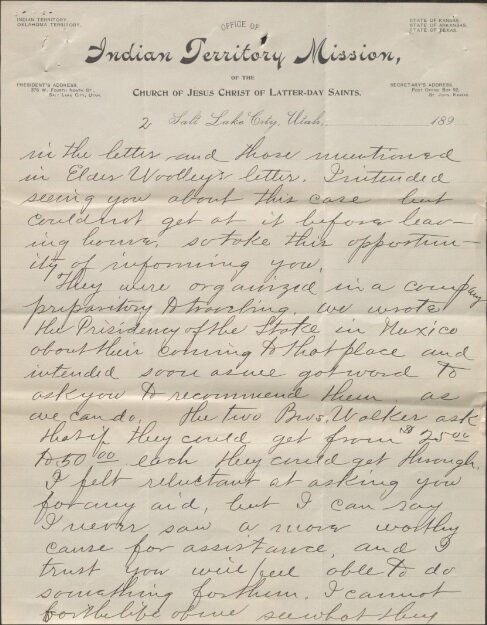 INDIAN TERRITORY.
OKLAHOMA TERRITORY.
OFFICE OF
STATE OF KANSAS.
STATE OF ARKANSAS.
STATE OF TEXAS.
Indian Territory Mission,
OF THE
CHURCH OF JESUS CHRIST OF LATTER-DAY SAINTS.
PRESIDENT'S ADDRESS,
276 W. FOURTH NORTH ST.,
SALT LAKE CITY, UTAH.
SECRETARY'S ADDRESS,
POST OFFICE BOX 92,
ST. JOHN, KANSAS.
2 Salt Lake City, Utah, 189
in the letter and those mentioned
in Elder Woolley's letter. I intended
seeing you about this case but
could not get at it before leav-
ing home, so take this opportun-
ity of informing you.
They were organized in a company
prepariatory to traveling. we wrote
the Presidency of the Stake in Mexico
about their coming to that place and
intended soon as we got word to
ask you to recommend them as
we can do. The two Bros. Walker ask
that if they could get from $25.00
to 50.00 each they could get through.
I felt reluctant at asking you
for any aid, but I can say
I never saw a more worthy
cause for assistance, and I
trust you will feel able to do
something for them. I cannot
for the life of me see what they